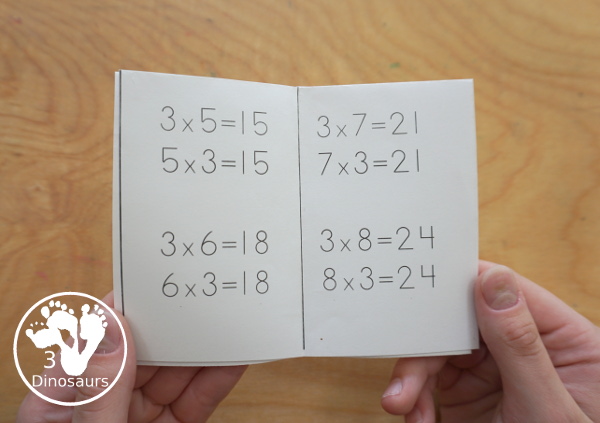 3x5=15
5x3=15
3x6=18
6x3=18
3x7=21
7x3=21
3x8=24
8x3=24
3
Dinosaurs